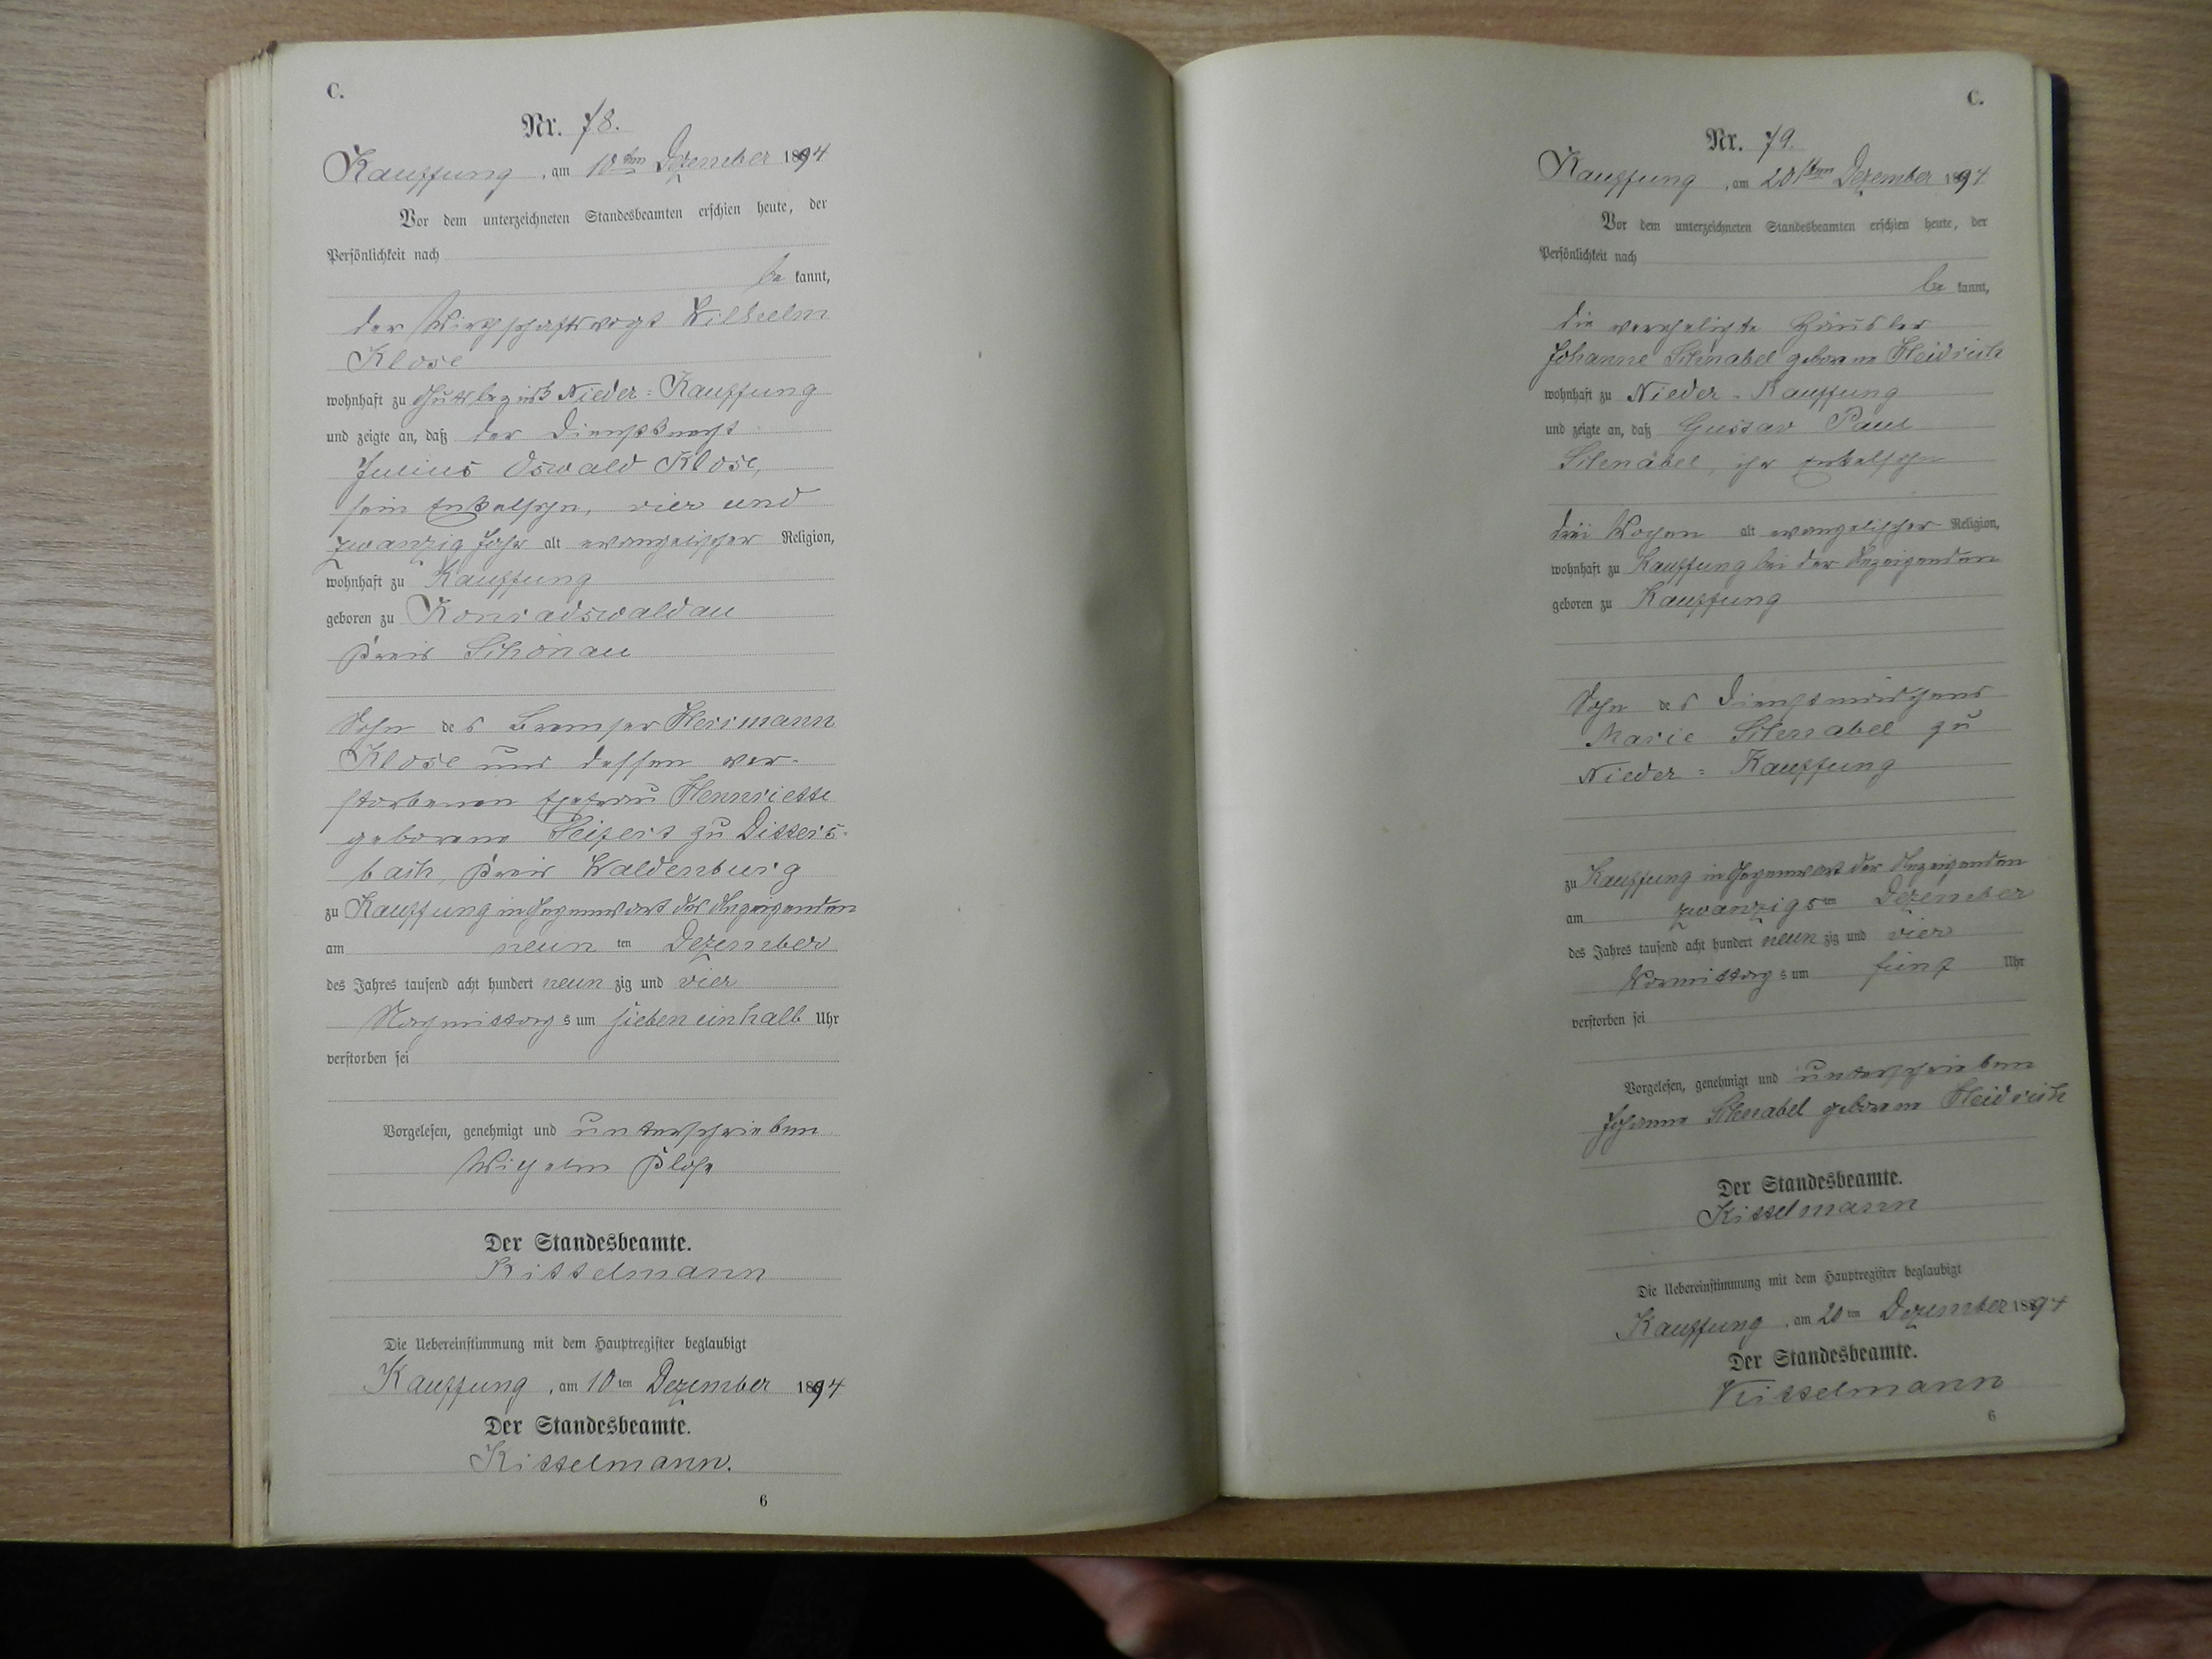 C.
Nr. 78.
Kauffung, am 10ten Dezember 1894
Vor dem unterzeichneten Standesbeamten erschien heute, der
Persönlichkeit nach
be kannt,
der Wirthschaftsvogt Wilhelm
Klose
wohnhaft zu Gutsbezirk Nieder-Kauffung
und zeigte an, daß der Dienstknecht
Julius Oswald Klose,
sein Enkelsohn, vier und
zwanzig Jahr alt evangelischer Religion,
wohnhaft zu Kauffung
geboren zu Konradswaldau
Kreis Schönau
Sohn des Bremser Herrmann
Klose und dessen ver-
storbenen Ehefrau Henriette
geborene Seifert zu Ditters-
bach, Kreis Waldenburg
zu Kauffung in Gegenwart des Anzeigenden
am neun ten Dezember
des Jahres tausend acht hundert neun zig und vier
Nachmittag s um sieben einhalb Uhr
verstorben sei
Vorgelesen, genehmigt und unterschrieben
Wilhelm Klose
Der Standesbeamte.
Kittelmann
Die Uebereinstimmung mit dem Hauptregister beglaubigt
Kauffung, am 10ten Dezember 1894
Der Standesbeamte.
Kittelmann.
6
C.
Nr. 79.
Kauffung, am 20sten Dezember 1894
Vor dem unterzeichneten Standesbeamten erschien heute, der
Persönlichkeit nach
be kannt,
die verehelichte Häusler
Johanne Schnabel geborene Heidrich
wohnhaft zu Nieder-Kauffung
und zeigte an, daß Gustav Paul
Schnabel, ihr Enkelsohn
drei Wochen alt evangelischer Religion,
wohnhaft zu Kauffung bei der Anzeigenden
geboren zu Kauffung
Sohn des Dienstmädchens
Marie Schnabel zu
Nieder-Kauffung
zu Kauffung in Gegenwart der Anzeigenden
am zwanzigsten Dezember
des Jahres tausend acht hundert neun zig und vier
Vormittag s um fünf Uhr
verstorben sei
Vorgelesen, genehmigt und unterschrieben
Johanne Schnabel geborene Heidrich
Der Standesbeamte.
Kittelmann
Die Uebereinstimmung mit dem Hauptregister beglaubigt
Kauffung, am 20ten Dezember 1894
Der Standesbeamte.
Kittelmann
6